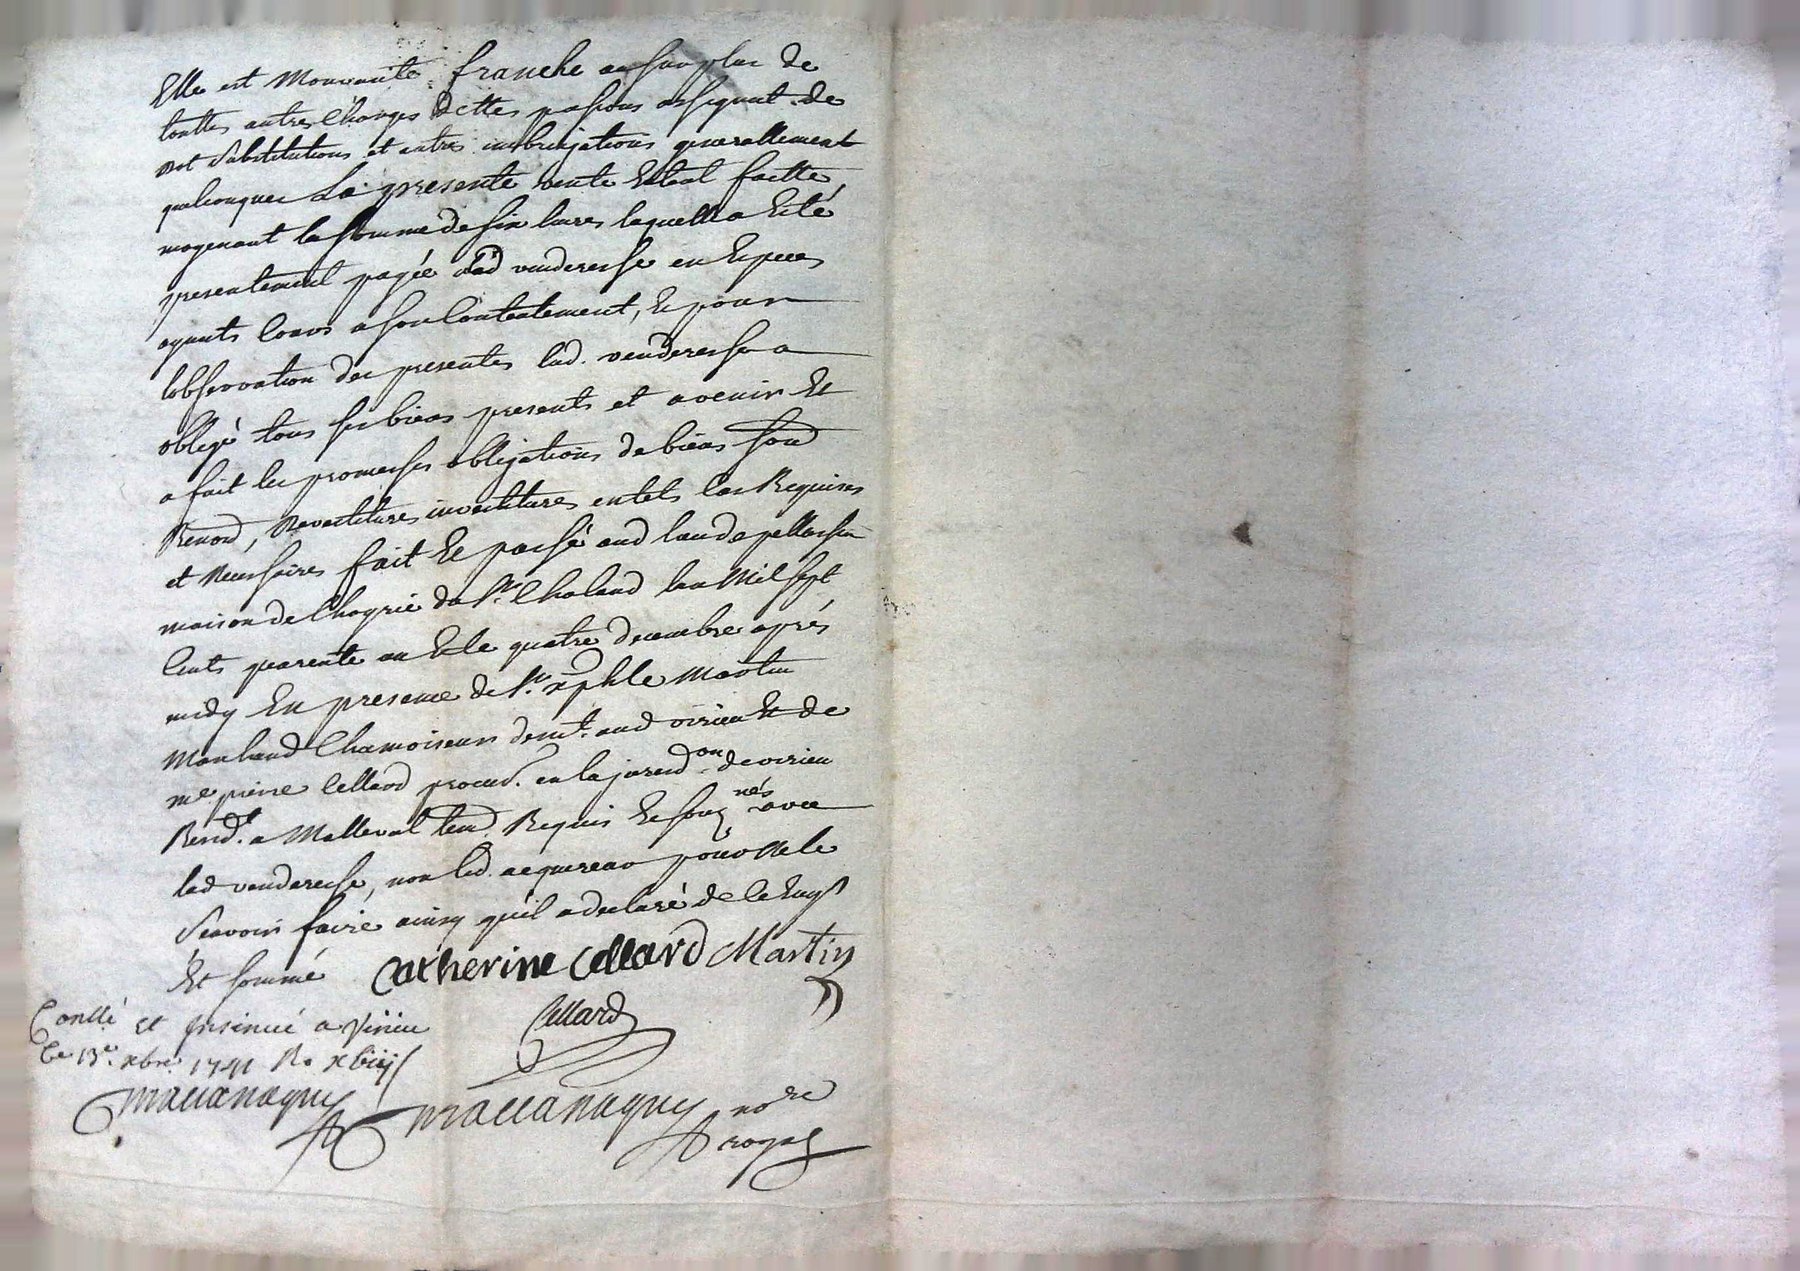 Elle est Mouvante franche au surplus de
touttes autres Charges dettes pasions assignat de
dot substitutions et autres imbrigations generallement
quelconques La presente vente Estant faitte
moyenant la somme de six livres laquelle a Esté
presentement payée a lad venderesse en Especes
ayants Cours a son Contentement, Et pour
lobservation des presentes lad. venderesse a
obligé tous ses biens presents et avenir Et
a fait les promesses obligations de biens fond
Renond, Revestitures investitures en tels Cas Requises
et Necessaires fait Et passé aud lieu de pellossin
maison de du Sr. Chaland lan Mil sept
Cents quarente un Et le quatre decembre aprés
midy En presence de Sr. xphle Martin
Marchand Chamoiseur demt. aud virieu Et de
me pierre Cellard procur. en la juridon. de virieu
Resid.t a Malleval tem. Requis Et souz.nés avec
lad venderesse, non led. acquereur pour ne le
Scavoir faire ainsy quil a declaré de ce Enqs
Et sommé Catherine Cellard Martin
Cellard
Conllé et Insinué a Virieu
Ce 13e. xbre. 1741 Rs
Mallanaguy
Mallanaguy nore
royal